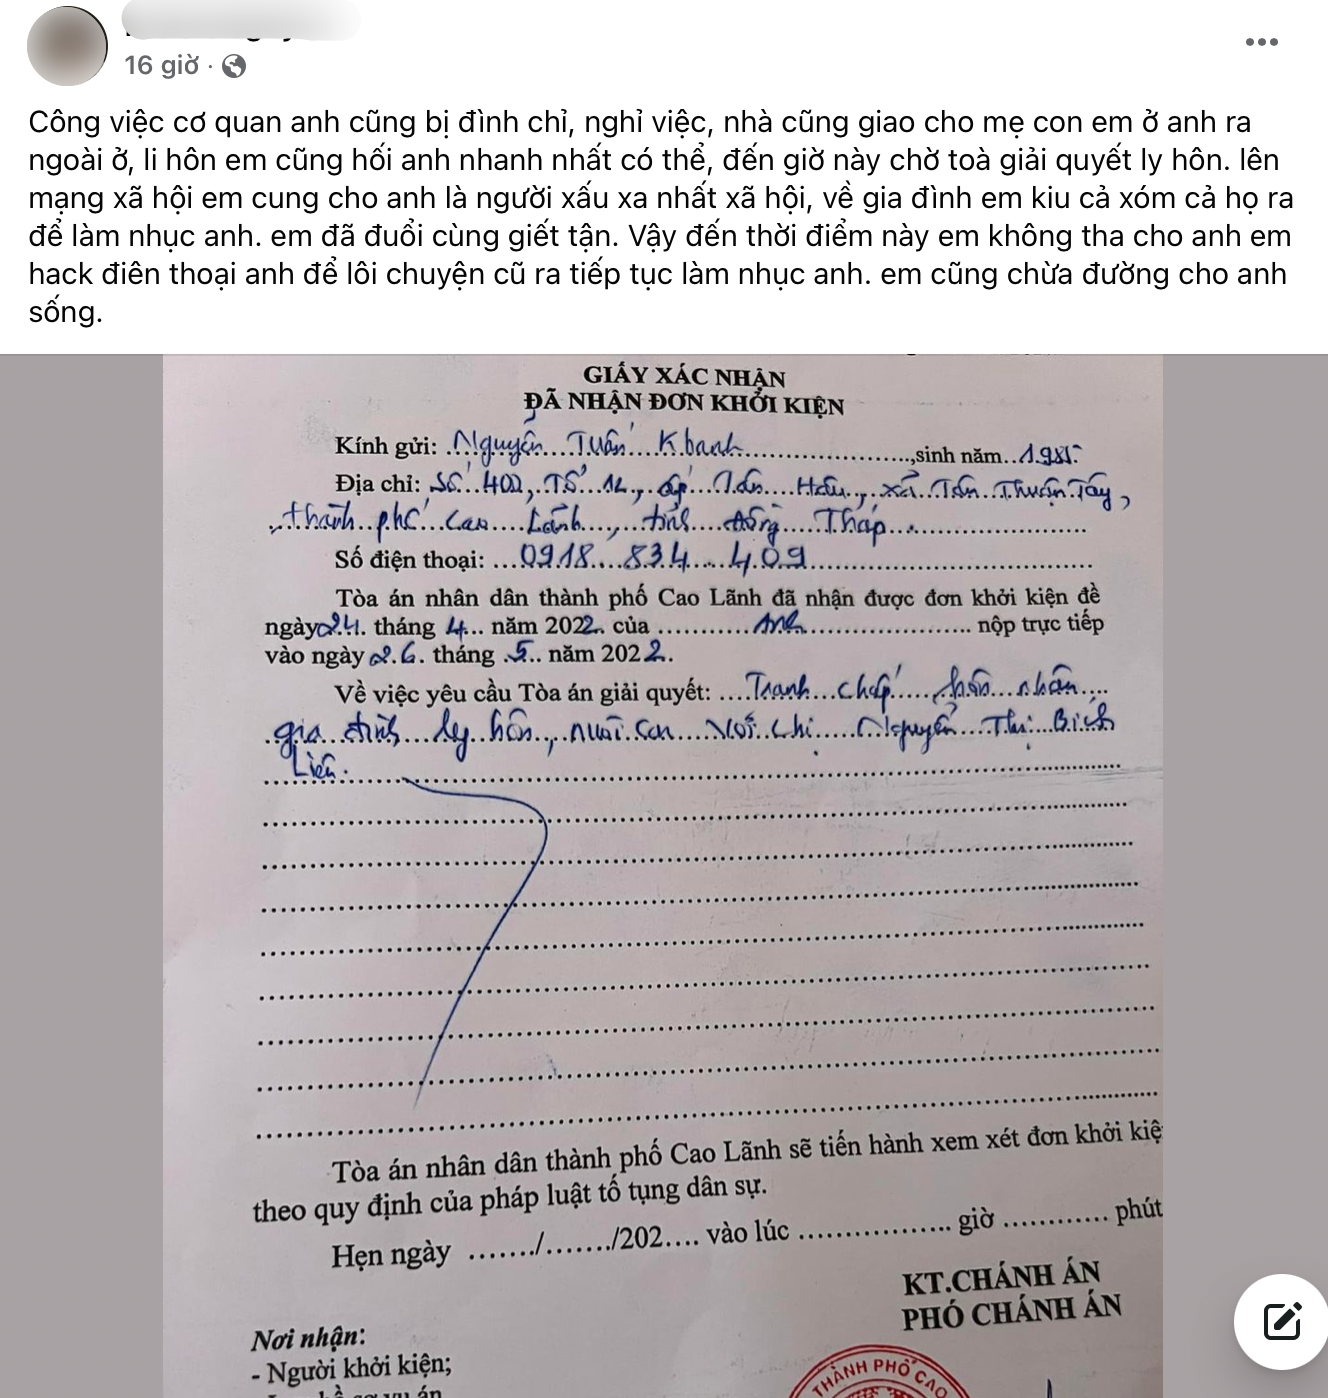 16 giờ ·
Công việc cơ quan anh cũng bị đình chỉ, nghỉ việc, nhà cũng giao cho mẹ con em ở anh ra
ngoài ở, li hôn em cũng hối anh nhanh nhất có thể, đến giờ này chờ toà giải quyết ly hôn. lên
mạng xã hội em cung cho anh là người xấu xa nhất xã hội, về gia đình em kiu cả xóm cả họ ra
để làm nhục anh. em đã đuổi cùng giết tận. Vậy đến thời điểm này em không tha cho anh em
hack điên thoại anh để lôi chuyện cũ ra tiếp tục làm nhục anh. em cũng chừa đường cho anh
sống.
GIẤY XÁC NHẬN
ĐÃ NHẬN ĐƠN KHỞI KIỆN
Kính gửi: Nguyễn Tuấn Khanh, sinh năm 1985
Địa chỉ: Số 402, Tổ 12, ấp Tân Hậu, xã Tân Thuận Tây,
thành phố Cao Lãnh, tỉnh Đồng Tháp
Số điện thoại: 0918 834 409
Tòa án nhân dân thành phố Cao Lãnh đã nhận được đơn khởi kiện đề
ngày 24 tháng 4 năm 2022 của Anh nộp trực tiếp
vào ngày 26 tháng 5 năm 2022.
Về việc yêu cầu Tòa án giải quyết: Tranh chấp hôn nhân
gia đình ly hôn, nuôi con với chị Nguyễn Thị Bích
Liên.
Tòa án nhân dân thành phố Cao Lãnh sẽ tiến hành xem xét đơn khởi kiệ
theo quy định của pháp luật tố tụng dân sự.
Hẹn ngày ......./......./202.... vào lúc .................. giờ ............ phút
KT.CHÁNH ÁN
PHÓ CHÁNH ÁN
Nơi nhận:
- Người khởi kiện;
THÀNH PHỐ CAO